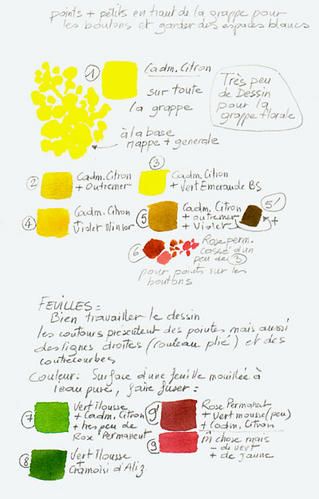 points + petits en haut de la grappe pour
les boutons et garder des espaces blancs
1
Cadm. Citron
sur toute
la grappe
Très peu
de Dessin
pour la
grappe florale
à la base
nappe + generale
2
Cadm. Citron
+ outremer
3
Cadm. Citron
+ Vert Emeraude BS
4
Cadm. Citron
Violet Winsor
5
Cadm. Citron
+ outremer
+ Violet
5'
+
6
Rose perm.
cassé d'un
peu de 5
pour points sur les
boutons
FEUILLES =
Bien travailler le dessin
les contours présentent des pointes mais aussi
des lignes droites (rouleau plié) et des
contrecourbes
Couleur : Surface d'une feuille mouillée à
l'eau pure, faire fuser :
7
Vert Mousse
+ Cadm. Citron
+ très peu de
Rose Permanent
8
Vert Mousse
+
Cramoisi d'Aliz
9'
Rose Permanent
+ Vert mousse (peu)
+ Cadm. Citron
9
M chose mais
- de vert
+ de jaune